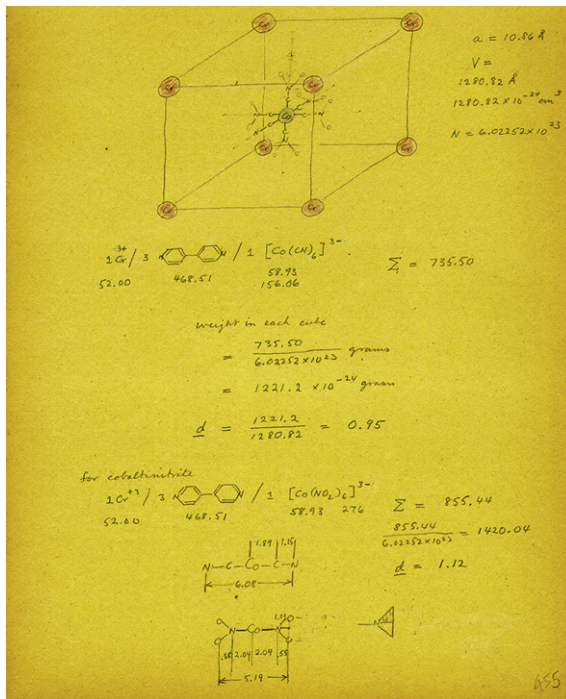 a = 10.86 Å
V =
1280.82 Å
1280.82 × 10⁻²⁴ cm³
N = 6.02252×10²³
Cr Cr
Cr Cr
N N N
C C C
N C Co C N
C C
N N
Cr Cr
Cr Cr
1 Cr³⁺ / 3 N N / 1 [Co(CN)₆]³⁻
52.00 468.51 58.93
156.06
Σ = 735.50
weight in each cube
= 735.50 / 6.02252×10²³ grams
= 1221.2 × 10⁻²⁴ grams
d = 1221.2 / 1280.82 = 0.95
for cobaltinitrite
1 Cr⁺³ / 3 N N / 1 [Co(NO₂)₆]³⁻
52.00 468.51 58.93 276
Σ = 855.44
855.44 / 6.02252×10²³ = 1420.04
d = 1.12
1.89 1.15
N–C–Co–C–N
6.08
O O
N–Co–N
O O
.55 2.04 2.04 .55
5.19
N
455